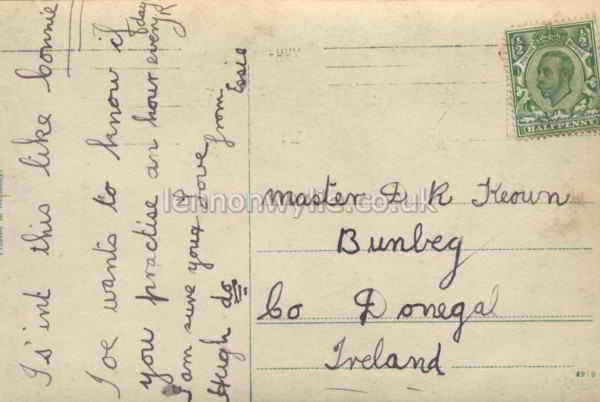 Is'int this like bonnie
Joe wants to know if
you practise an hour every day R
I am sure you Love from Essie
Hugh do
master D R Keown
Bunbeg
Co Donegal
Ireland
1/2 1/2
HALFPENNY
lennonwylie.co.uk